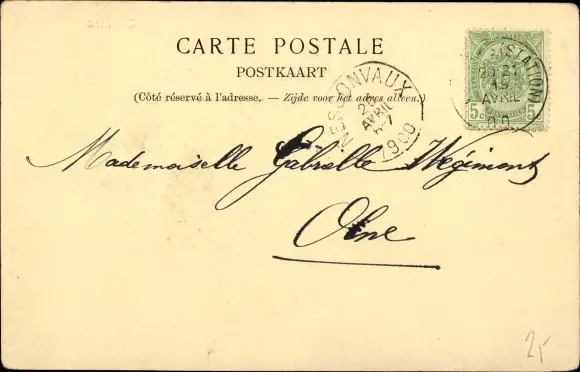 CARTE POSTALE
POSTKAART
(Côté réservé à l'adresse. — Zijde voor het adres alleen.)
NESSONVAUX
AVRIL
6-7
1900
(STATION)
AVRIL
00
5c 5c
Mademoiselle Gabrielle Wégimont
Olne
25